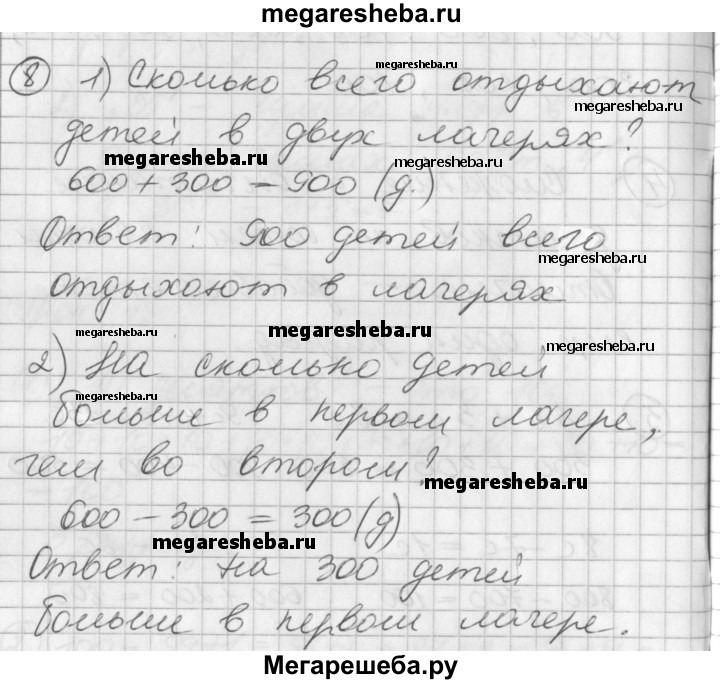 megaresheba.ru
megaresheba.ru
8 1) Сколько всего отдыхают
megaresheba.ru
детей в двух лагерях?
megaresheba.ru megaresheba.ru
600 + 300 = 900 (д.)
Ответ: 900 детей всего
megaresheba.ru
отдыхают в лагерях
megaresheba.ru megaresheba.ru
megaresheba.ru
2) На сколько детей
megaresheba.ru
больше в первом лагере,
чем во втором?
megaresheba.ru
600 - 300 = 300 (д)
megaresheba.ru
Ответ: на 300 детей
больше в первом лагере.
Мегарешеба.ру